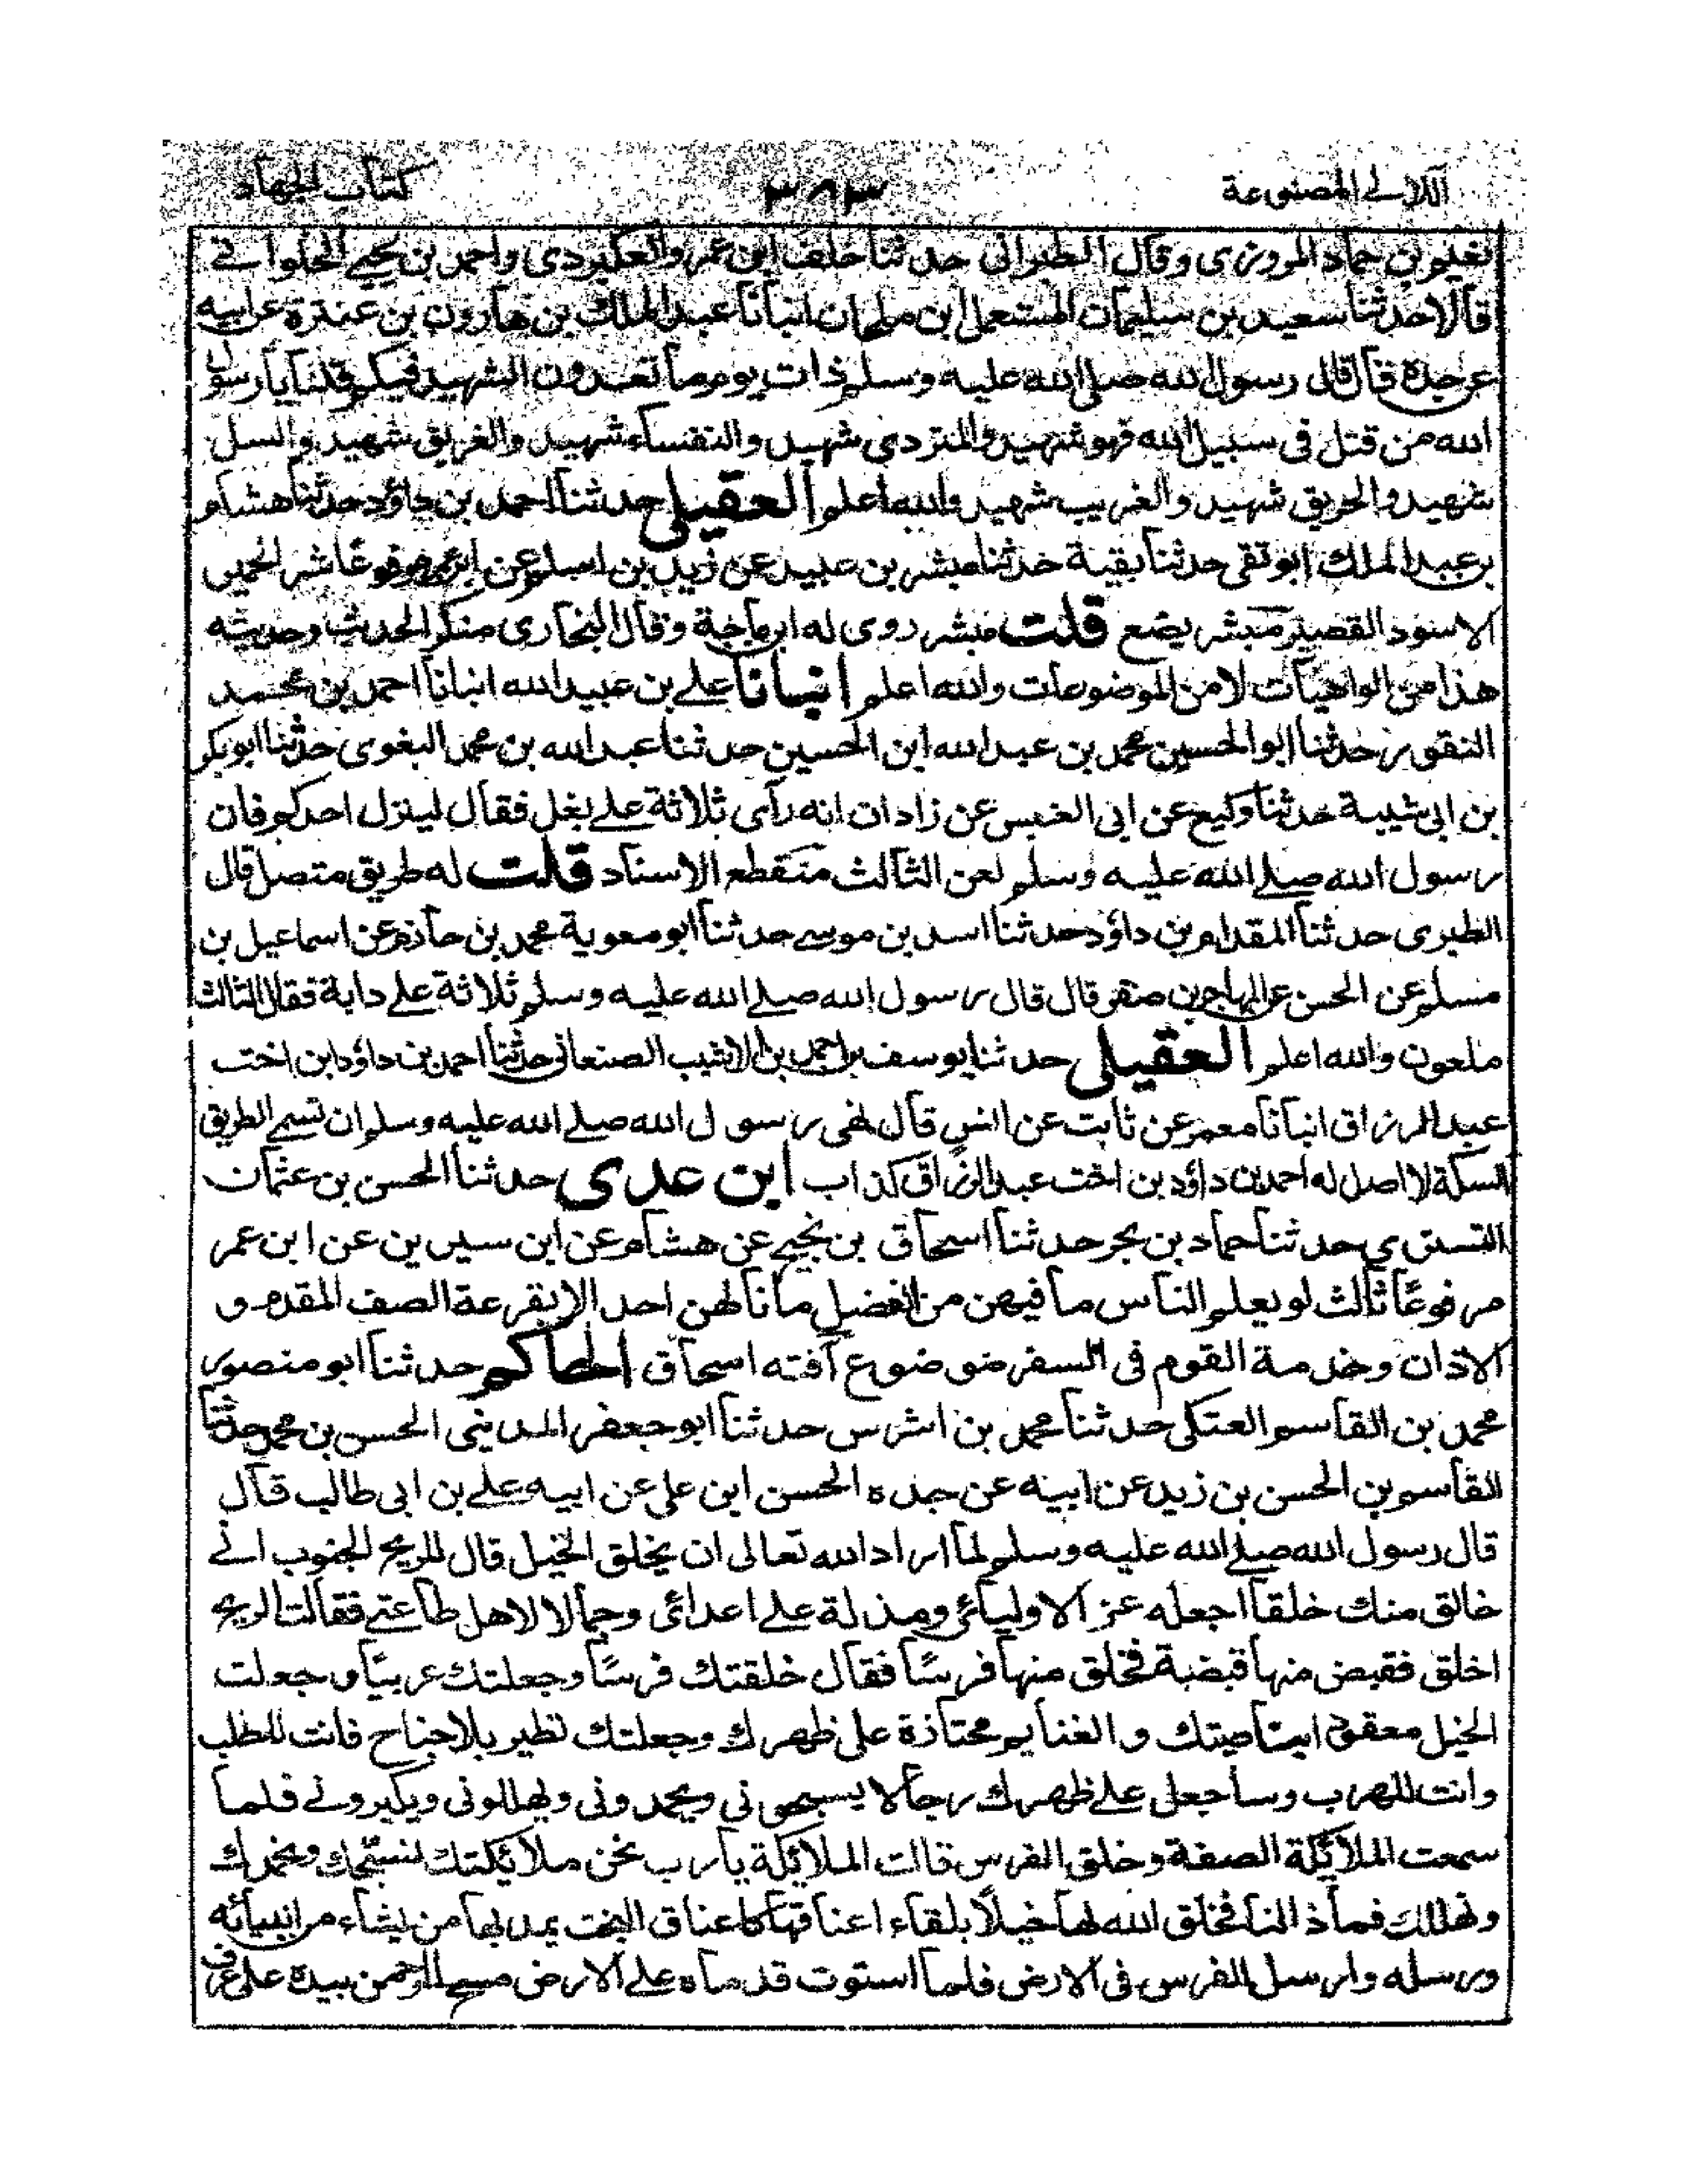 اللآلى المصنوعة
٣٨٣
كتاب الجهاد
نعيم بن حماد المروزى وقال الطبرانى حدثنا خلف ابن عمرو العكبردى واحمد بن يحيى الحلوانى
قالا حدثنا سعيد بن سليمان المستعمل ابن ملحان انبأنا عبد الملك بن هارون بن عنترة عن ابيه
عن جده قال قال رسول الله صلى الله عليه وسلم ذات يوم ما تعدون الشهيد فيكم قلنا يا رسول
الله من قتل فى سبيل الله فهو شهيد والمتردى شهيد والنفساء شهيد والغريق شهيد والسل
شهيد والحريق شهيد والغريب شهيد والله اعلم العقيلى حدثنا احمد بن داؤد حدثنا هشام
بن عبد الملك ابو تقى حدثنا بقية حدثنا مبشر بن عبيد عن زيد بن اسلم عن ابن عمر مرفوعًا شر الحمير
الاسود القصير مبشر يضع قلت مبشر روى له ابن ماجة وقال البخارى منكر الحديث وحديثه
هذا من الواهيات لا من الموضوعات والله اعلم انبانا على بن عبيد الله انبانا احمد بن محمد
النقور حدثنا ابو الحسين محمد بن عبد الله ابن الحسين حدثنا عبد الله بن محمد البغوى حدثنا ابو بكر
بن ابى شيبة حدثنا وكيع عن ابى العنبس عن زادان انه رآى ثلاثة على بغل فقال لينزل احدكم فان
رسول الله صلى الله عليه وسلم لعن الثالث منقطع الاسناد قلت له طريق متصل قال
الطبرى حدثنا المقدام بن داؤد حدثنا اسد بن موسى حدثنا ابو معوية محمد بن حازم عن اسماعيل بن
مسلم عن الحسن عن المهاجر بن صنقر قال قال رسول الله صلى الله عليه وسلم ثلاثة على داية فقال الثالث
ملعون والله اعلم العقيلى حدثنا يوسف بن احمد بن الاشيب الصنعانى حدثنا احمد بن داؤد ابن اخت
عبد الرزاق انبانا معمر عن ثابت عن انس قال نهى رسول الله صلى الله عليه وسلم ان تسمى الطريق
السكة لا اصل له احمد بن داؤد بن اخت عبد الرزاق كذاب ابن عدى حدثنا الحسن بن عثمان
التسترى حدثنا حماد بن بحر حدثنا اسحاق بن نجيح عن هشام عن ابن سيرين عن ابن عمر
مرفوعًا ثالث لو يعلم الناس ما فيهن من الفضل ما نالهن احد الا بقرعة الصف المقدم و
الاذان وخدمة القوم فى السفر ضوضوع آفته اسحاق الحاكم حدثنا ابو منصور
محمد بن القاسم العتكى حدثنا محمد بن اشرس حدثنا ابو جعفر المدينى الحسن بن محمد حدثنا
القاسم بن الحسن بن زيد عن ابيه عن جده الحسن ابن على عن ابيه على بن ابى طالب قال
قال رسول الله صلى الله عليه وسلم لما اراد الله تعالى ان يخلق الخيل قال للريح الجنوب انى
خالق منك خلقا اجعله عز الاوليائى ومذلة على اعدائى وجمالا لاهل طاعتى فقالت الريح
اخلق فقبض منها قبضة فخلق منها فرسًا فقال خلقتك فرسًا وجعلتك عربيًا وجعلت
الخيل معقود ابناصيتك والغنايم محتازة على ظهرك وجعلتك تطير بلا جناح فانت للطلب
وانت للهرب وساجعل على ظهرك رجالا يسبحونى ويحمدونى ويهللونى ويكبرونى فلما
سمعت الملائكة الصفة وخلق الفرس قالت الملائكة يا رب نحن ملائكتك نسبحك ونحمدك
ونهللك فماذا لنا فخلق الله لها خيلًا بلقاء اعناقها كاعناق البخت يمد بها من يشاء من انبيائه
ورسله وارسل الفرس فى الارض فلما استوت قدماه على الارض مسح الرحمن بيده على عرف